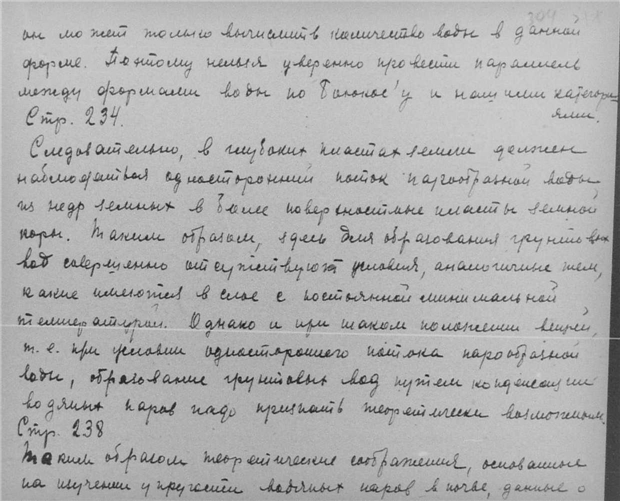 304
он может только вычислить количество воды в данной
форме. Поэтому нельзя уверенно провести параллель
между формами воды по Боюкос'у и нашими категори-
ями.
Стр. 234.
Следовательно, в глубоких пластах земли должен
наблюдаться односторонний поток парообразной воды
из недр земных в более поверхностные пласты земной
коры. Таким образом, здесь для образования грунтовых
вод совершенно отсутствуют условия, аналогичные тем,
какие имеются в слое с постоянной минимальной
температурой. Однако и при таком положении вещей,
т.е. при условии одностороннего потока парообразной
воды, образование грунтовых вод путем конденсации
водяных паров надо признать теоретически возможным.
Стр. 238
Таким образом теоретические соображения, основанные
на изучении упругости водяных паров в почве данные о